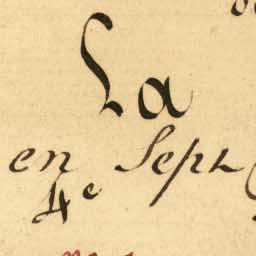 La
en Sept
4e